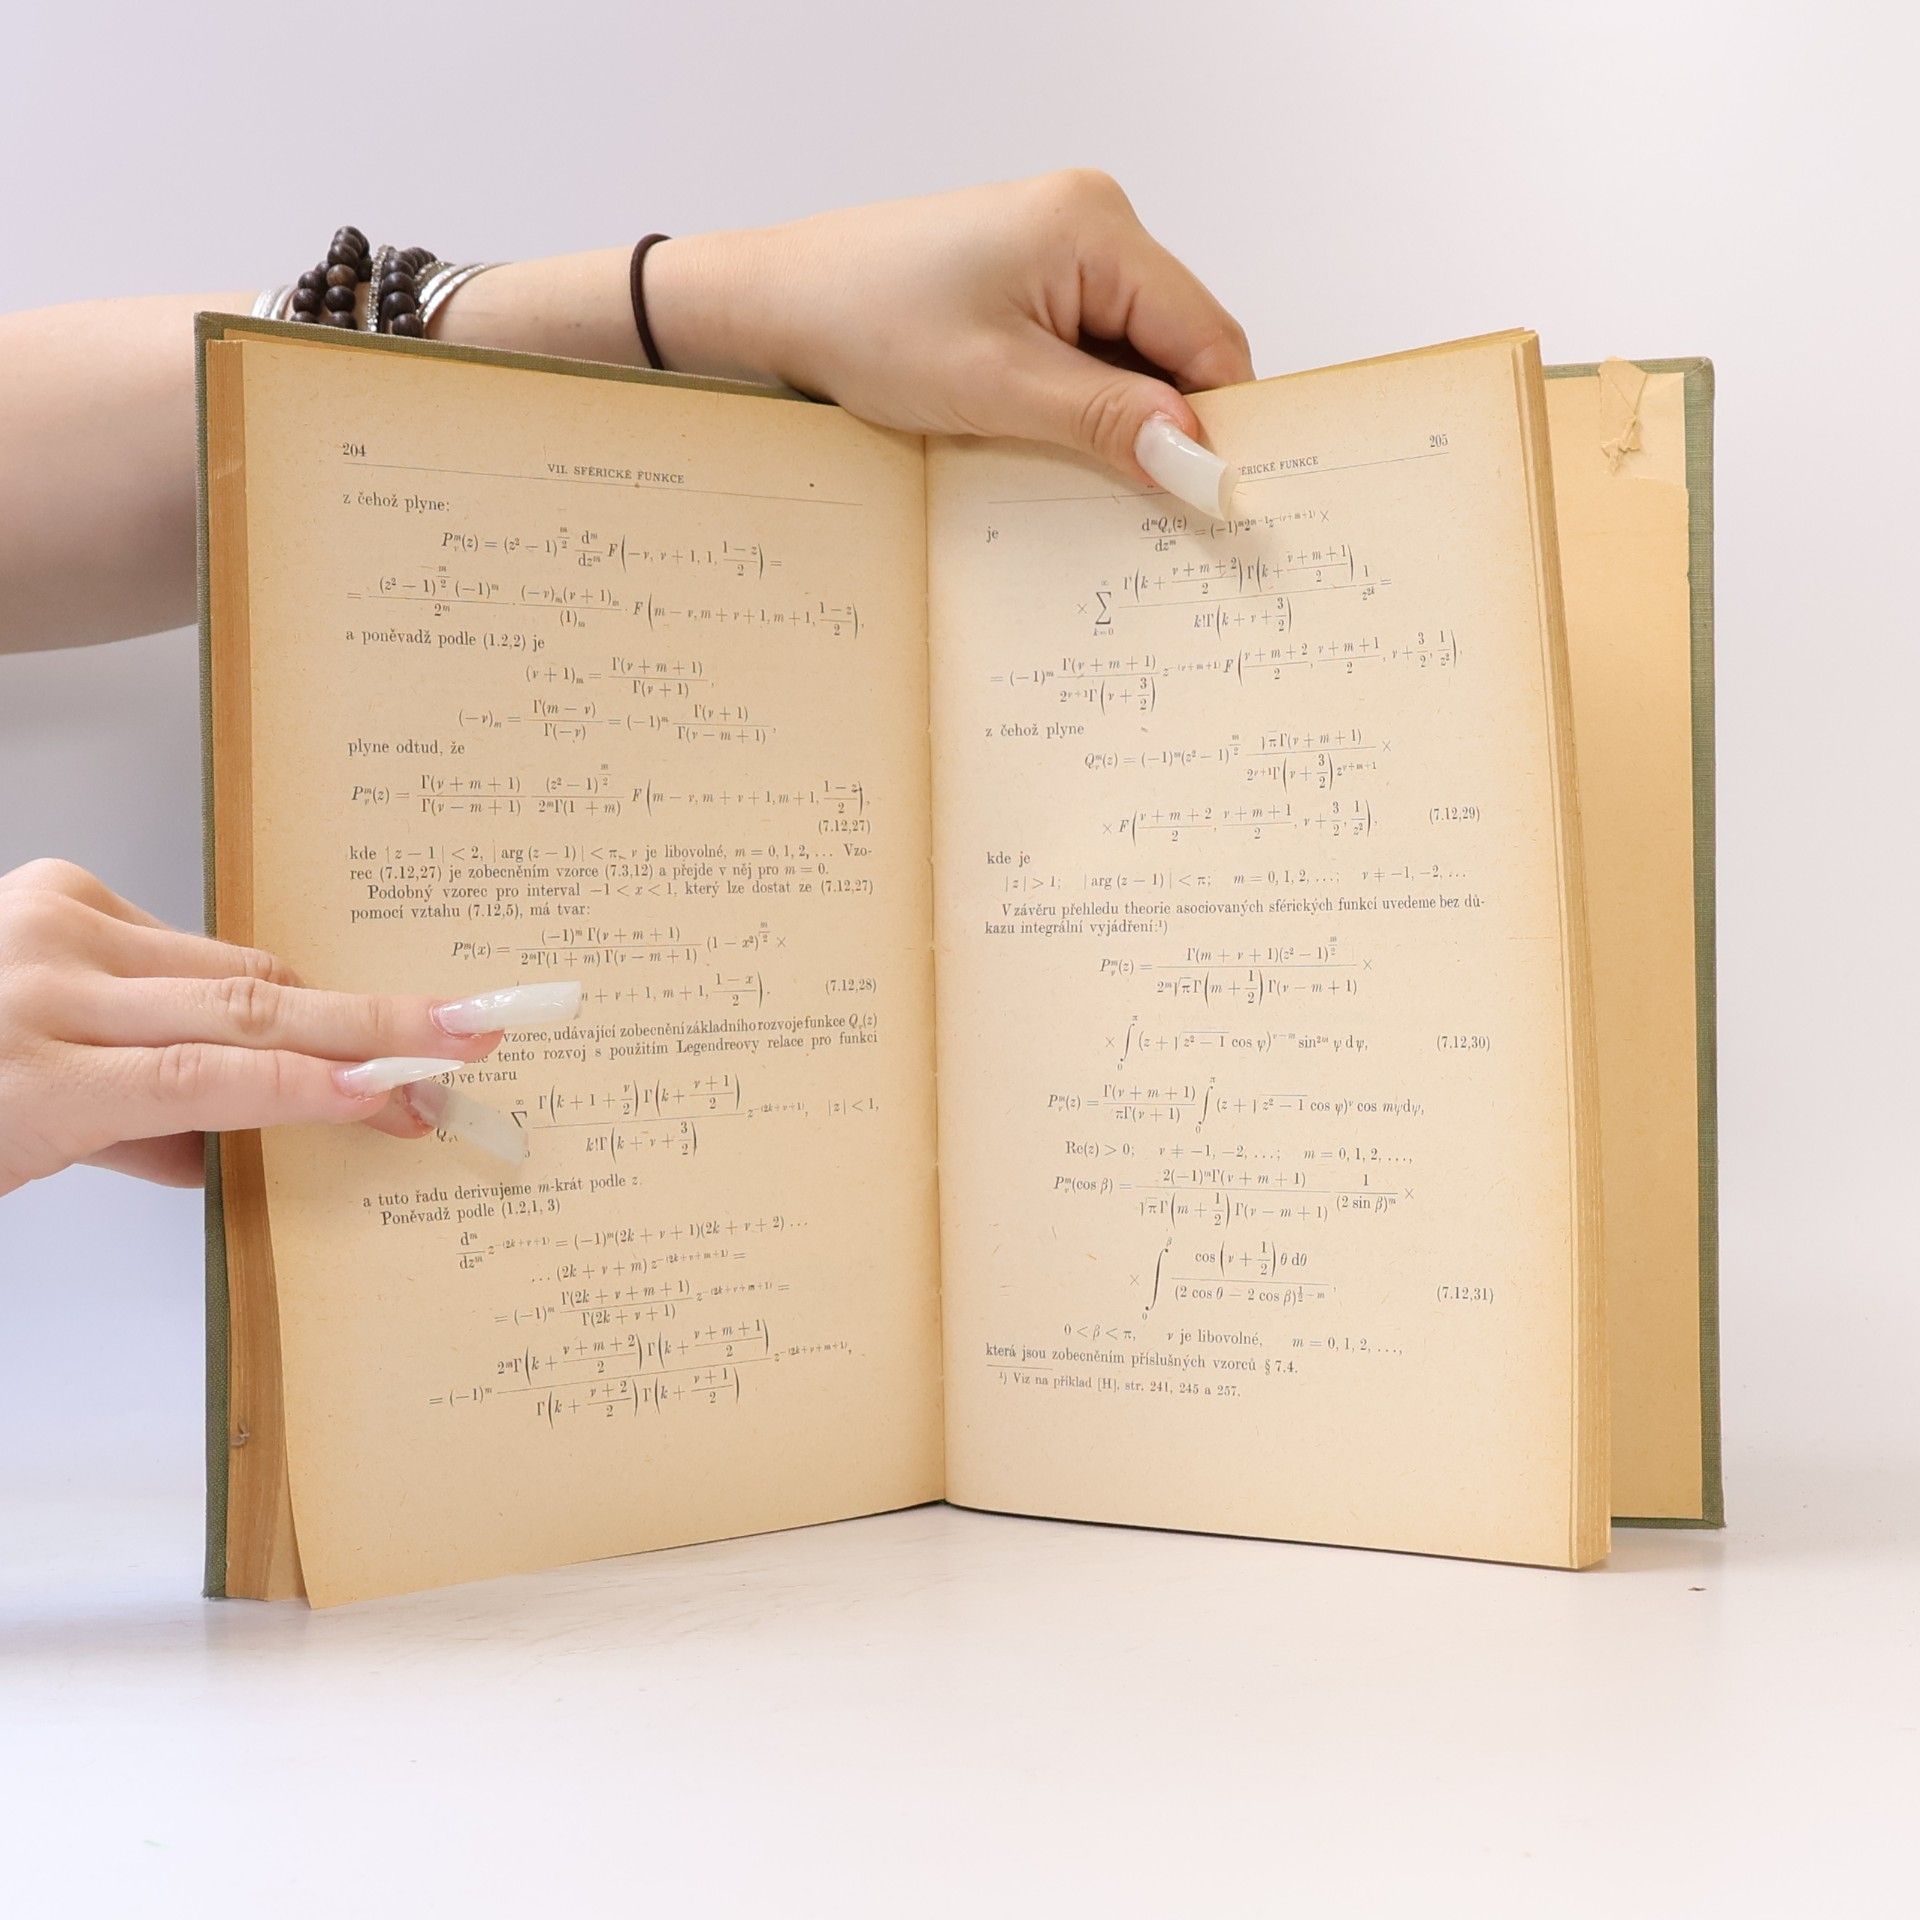 204
VII. SFÉRICKÉ FUNKCE
z čehož plyne:
P_ν^m(z) = (z² − 1)^{m/2} d^m/dz^m F(−ν, ν + 1, 1, (1 − z)/2) =
= (z² − 1)^{m/2} (−1)^m / 2^m · (−ν)_m(ν + 1)_m / (1)_m · F(m − ν, m + ν + 1, m + 1, (1 − z)/2),
a poněvadž podle (1.2,2) je
(ν + 1)_m = Γ(ν + m + 1) / Γ(ν + 1),
(−ν)_m = Γ(m − ν) / Γ(−ν) = (−1)^m Γ(ν + 1) / Γ(ν − m + 1),
plyne odtud, že
P_ν^m(z) = Γ(ν + m + 1) / Γ(ν − m + 1) (z² − 1)^{m/2} / 2^mΓ(1 + m) F(m − ν, m + ν + 1, m + 1, (1 − z)/2),
(7.12,27)
kde | z − 1 | < 2, | arg (z − 1) | < π, ν je libovolné, m = 0, 1, 2, ... Vzo-
rec (7.12,27) je zobecněním vzorce (7.3,12) a přejde v něj pro m = 0.
Podobný vzorec pro interval −1 < x < 1, který lze dostat ze (7.12,27)
pomocí vztahu (7.12,5), má tvar:
P_ν^m(x) = (−1)^m Γ(ν + m + 1) / 2^mΓ(1 + m) Γ(ν − m + 1) (1 − x²)^{m/2} ×
+ ν + 1, m + 1, (1 − x)/2). (7.12,28)
vzorec, udávající zobecnění základního rozvoje funkce Q_ν(z)
tento rozvoj s použitím Legendreovy relace pro funkci
,3) ve tvaru
Γ(k + 1 + ν/2) Γ(k + (ν + 1)/2) / k!Γ(k + ν + 3/2) z^{−(2k+ν+1)}, |z| < 1,
a tuto řadu derivujeme m-krát podle z.
Poněvadž podle (1.2,1, 3)
d^m/dz^m z^{−(2k+ν+1)} = (−1)^m(2k + ν + 1)(2k + ν + 2) ...
... (2k + ν + m) z^{−(2k+ν+m+1)} =
= (−1)^m Γ(2k + ν + m + 1) / Γ(2k + ν + 1) z^{−(2k+ν+m+1)} =
= (−1)^m 2^mΓ(k + (ν + m + 2)/2) Γ(k + (ν + m + 1)/2) / Γ(k + (ν + 2)/2) Γ(k + (ν + 1)/2) z^{−(2k+ν+m+1)},
FÉRICKÉ FUNKCE
205
je d^mQ_ν(z)/dz^m = (−1)^m2^{m−1}z^{−(ν+m+1)} ×
× ∑_{k=0}^∞ Γ(k + (ν + m + 2)/2) Γ(k + (ν + m + 1)/2) / k!Γ(k + ν + 3/2) 1/z^{2k} =
= (−1)^m Γ(ν + m + 1) / 2^{ν+1}Γ(ν + 3/2) z^{−(ν+m+1)} F((ν + m + 2)/2, (ν + m + 1)/2, ν + 3/2, 1/z²),
z čehož plyne
Q_ν^m(z) = (−1)^m(z² − 1)^{m/2} √π Γ(ν + m + 1) / 2^{ν+1}Γ(ν + 3/2) z^{ν+m+1} ×
× F((ν + m + 2)/2, (ν + m + 1)/2, ν + 3/2, 1/z²), (7.12,29)
kde je
| z | > 1; | arg (z − 1) | < π; m = 0, 1, 2, ...; ν ≠ −1, −2, ...
V závěru přehledu theorie asociovaných sférických funkcí uvedeme bez dů-
kazu integrální vyjádření:¹)
P_ν^m(z) = Γ(m + ν + 1)(z² − 1)^{m/2} / 2^m√π Γ(m + 1/2) Γ(ν − m + 1) ×
× ∫_0^π (z + √(z² − 1) cos ψ)^{ν−m} sin^{2m} ψ dψ, (7.12,30)
P_ν^m(z) = Γ(ν + m + 1) / πΓ(ν + 1) ∫_0^π (z + √(z² − 1) cos ψ)^ν cos mψ dψ,
Re(z) > 0; ν ≠ −1, −2, ...; m = 0, 1, 2, ...,
P_ν^m(cos β) = 2(−1)^mΓ(ν + m + 1) / √π Γ(m + 1/2) Γ(ν − m + 1) 1 / (2 sin β)^m ×
× ∫_0^β cos (ν + 1/2) θ dθ / (2 cos θ − 2 cos β)^{1/2 − m}, (7.12,31)
0 < β < π, ν je libovolné, m = 0, 1, 2, ...,
která jsou zobecněním příslušných vzorců § 7.4.
¹) Viz na příklad [H], str. 241, 245 a 257.